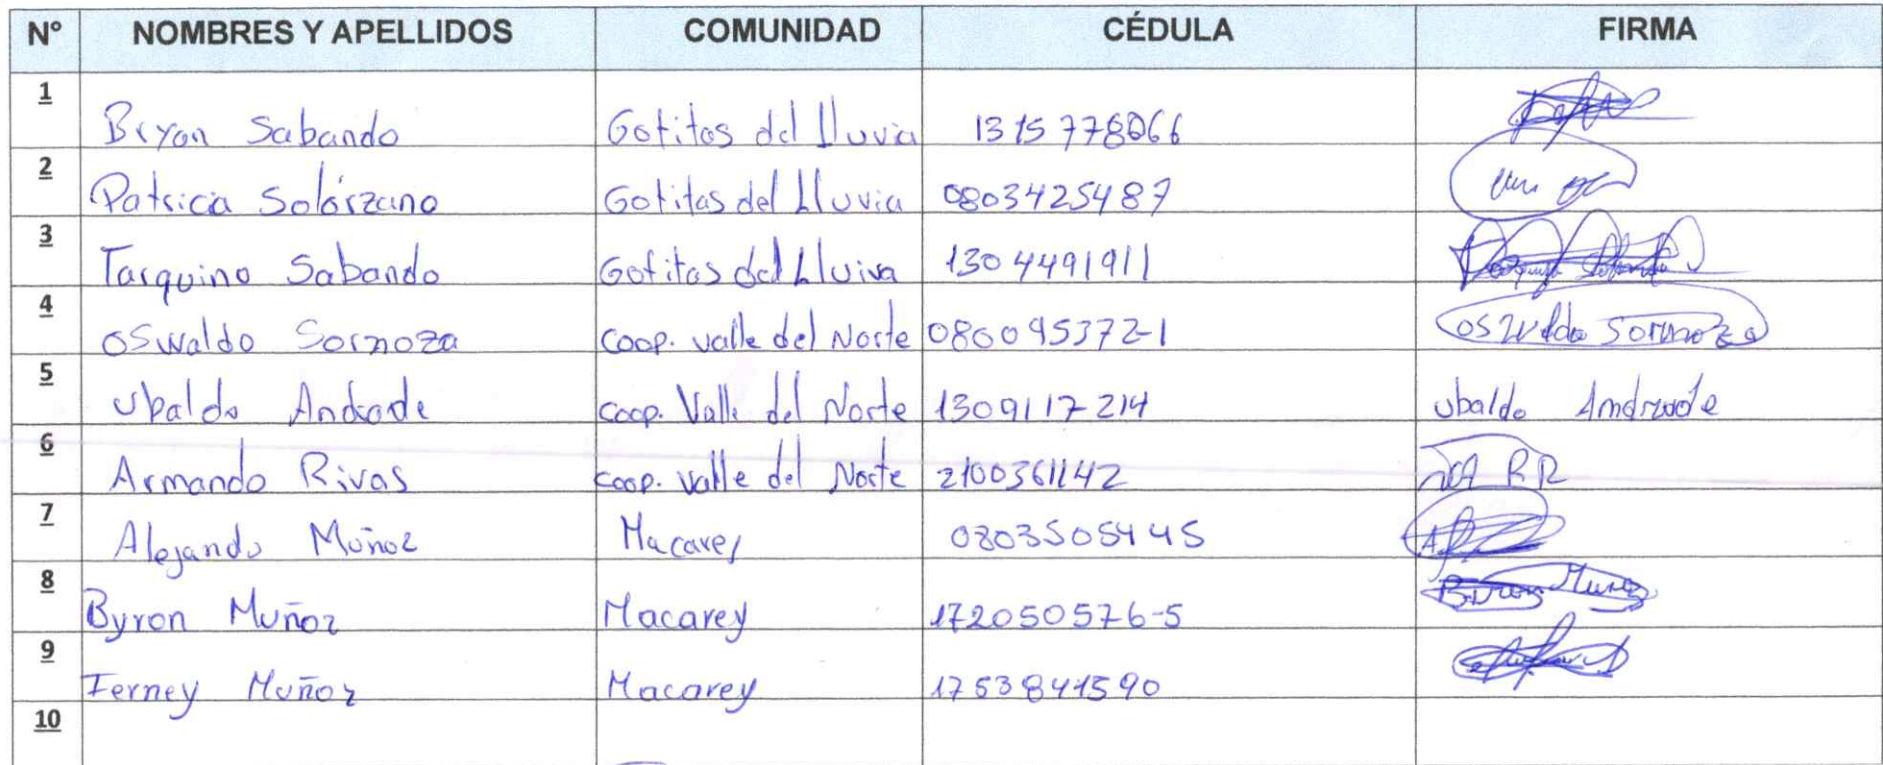 N° NOMBRES Y APELLIDOS COMUNIDAD CÉDULA FIRMA
1 Bryan Sabando Gotitas del lluvia 1315778066
2 Patricia Solórzano Gotitas del Lluvia 0803425487
3 Tarquino Sabando Gotitas del Lluiva 1304491911
4 Oswaldo Sornoza Coop. valle del Norte 080095372-1 Oswaldo Sornoza
5 Ubaldo Andrade Coop. Valle del Norte 1309117214 Ubaldo Andrade
6 Armando Rivas Coop. Valle del Norte 2100361142
7 Alejando Muñoz Macarey 0803505445
8 Byron Muñoz Macarey 172050576-5 Byron Muñoz
9 Ferney Muñoz Macarey 1753841590
10